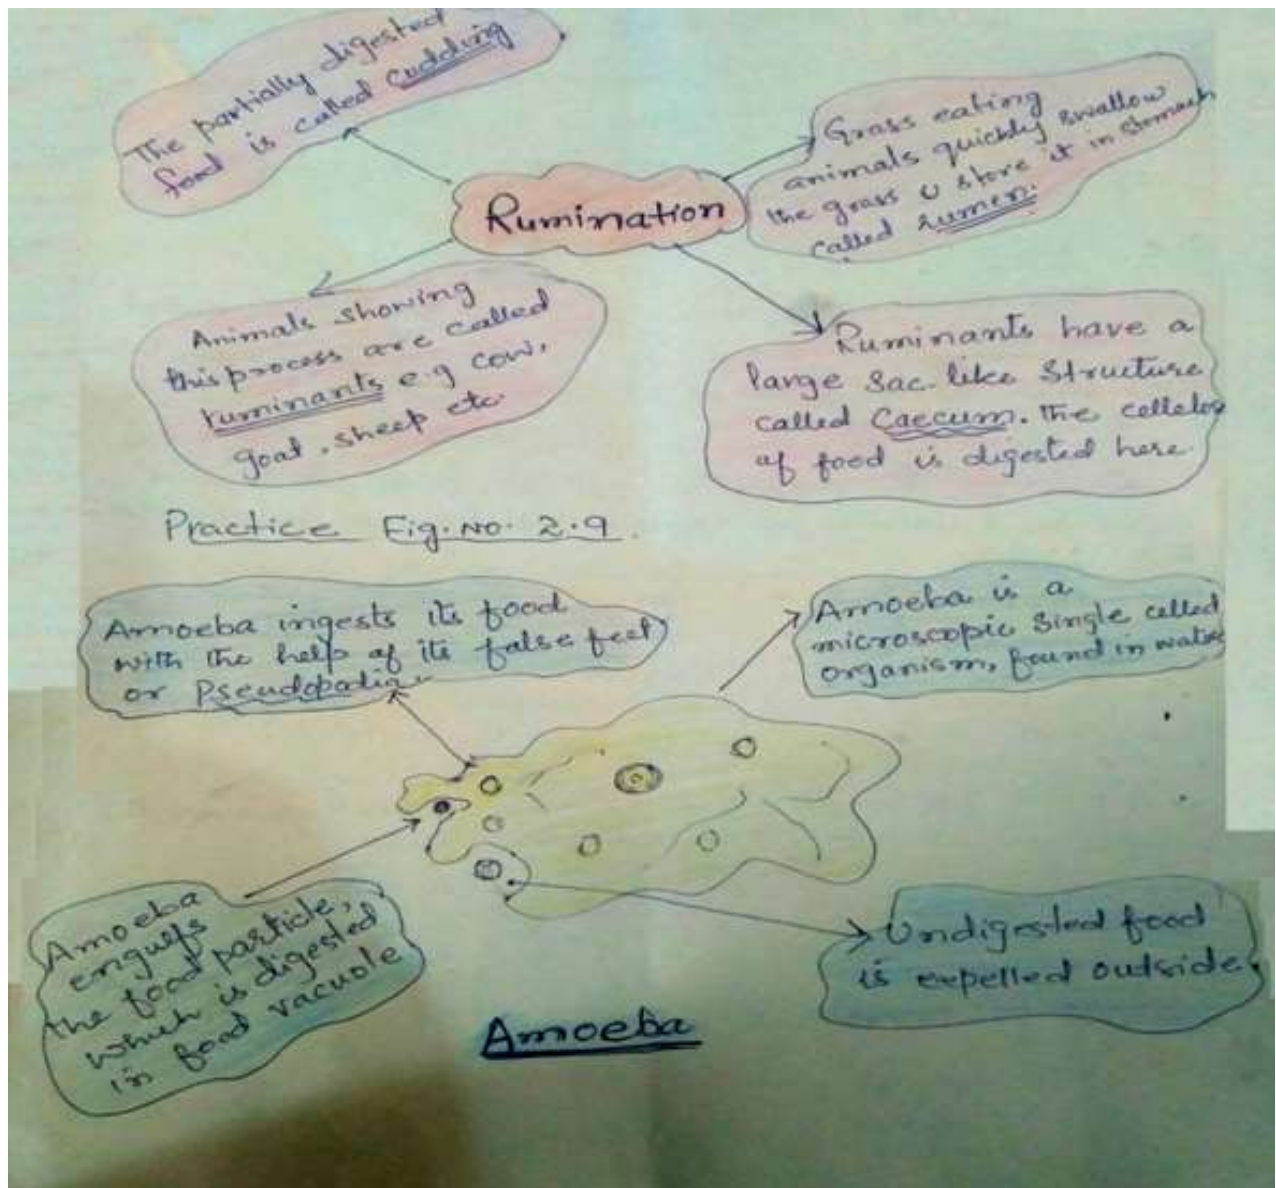 The partially digested
food is called Cudding
Rumination
Grass eating
animals quickly swallow
the grass & store it in stomach
called rumen.
Animals showing
this process are called
ruminants e.g cow,
goat, sheep etc.
Ruminants have a
large sac like structure
called Caecum. The cellulos
of food is digested here.
Practice Fig. No. 2.9.
Amoeba ingests its food
with the help of its false feet
or Pseudopodia.
Amoeba is a
microscopic single celled
organism, found in water
Amoeba
engulfs
the food particle,
which is digested
in food vacuole
Undigested food
is expelled outside.
Amoeba